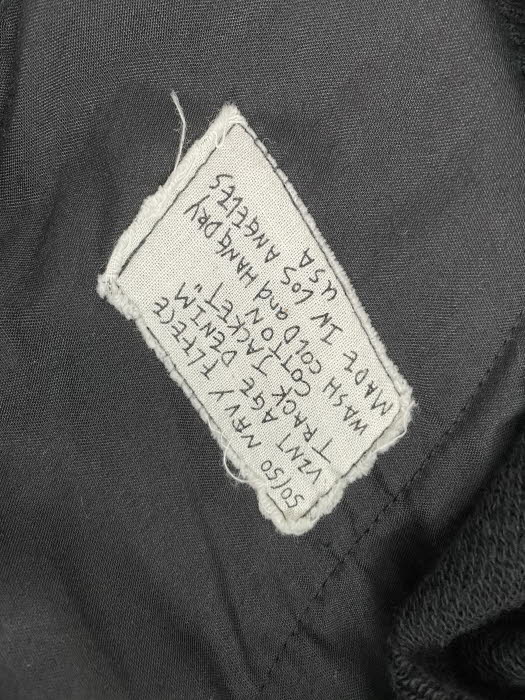 50/50 NAVY FLEECE
VINTAGE DENIM
TRACK JACKET"
COTTON
WASH COLD and HANG DRY
MADE IN LOS ANGELES
USA